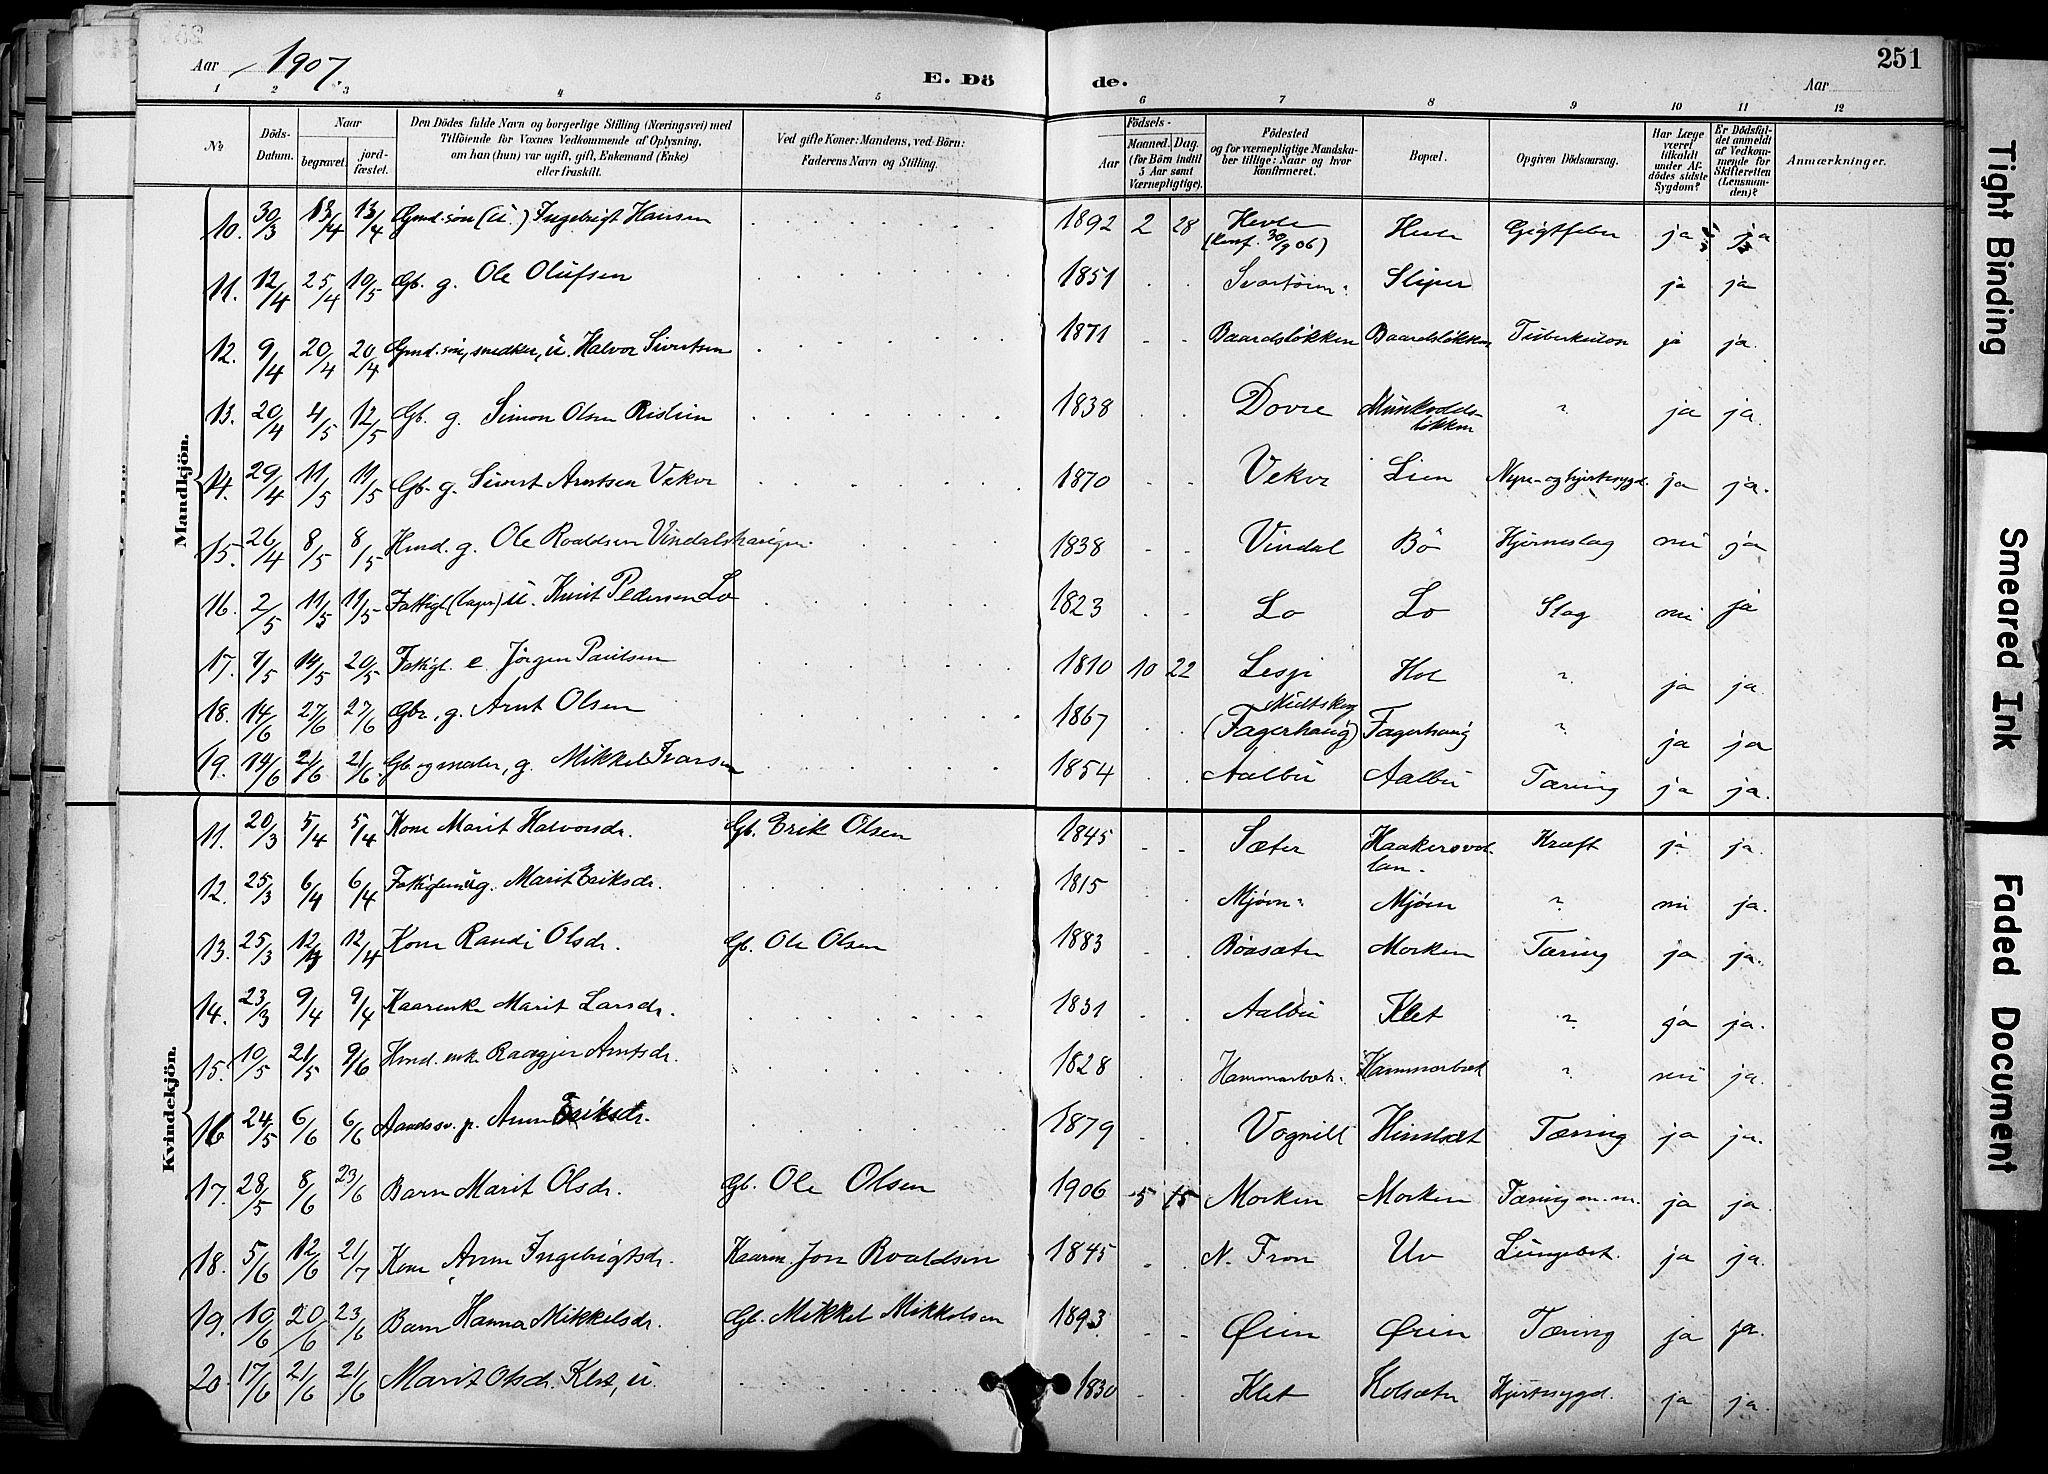 Aar 1907. E. Dö de. Aar 251
1 2 3 4 5 6 7 8 9 10 11 12
№ Döds-Datum. Naar begravet. jord-fæstet. Den Dödes fulde Navn og borgerlige Stilling (Næringsvei) med Tilföiende for Voxnes Vedkommende af Oplysning, om han (hun) var ugift, gift, Enkemand (Enke) eller fraskilt. Ved gifte Koner: Mandens, ved Börn: Faderens Navn og Stilling. Födsels- Aar Maaned. Dag. (for Börn indtil 5 Aar samt Værnepligtige). Födested og for værnepligtige Mandskaber tillige: Naar og hvor konfirmeret. Bopæl. Opgiven Dödsaarsag. Har Læge været tilkaldt under Afdödes sidste Sygdom? Er Dödsfaldet anmeldt af Vedkommende for Skifteretten (Lensmanden)? Anmærkninger.
Mandkjön.
10. 30/3 13/4 13/4 Gmd. sön (u.) Ingebrigt Hansen 1892 2 28 Hevle (Konf. 30/9 06) Hevle Gigtfeber ja ja
11. 12/4 25/4 10/5 Gb. g. Ole Olufsen 1851 Svartöien Sliper ja ja
12. 9/4 20/4 20/4 Gmd. sön, snedker, u. Halvor Sivertsen 1871 Baardslökken Baardslökken Tuberkulose ja ja.
13. 20/4 4/5 12/5 Gb. g. Simon Olsen Rislien 1838 Dovre Munkvolds-lökken " ja ja.
14. 29/4 11/5 11/5 Gb. g. Sivert Arntsen Vekve 1870 Vekve Lien Nyre- og hjertesygd. ja ja.
15. 26/4 8/5 8/5 Hmd. g. Ole Roaldsen Vindalshaugen 1838 Vindal Bö Hjerneslag nei ja
16. 2/5 11/5 11/5 Fattigl. (lægd) u. Knut Pedersen Lo 1823 Lo Lo Slag nei ja
17. 7/5 14/5 20/5 Fattigl. e. Jörgen Paulsen 1810 10 22 Lesje Hol " ja ja.
18. 14/6 27/6 27/6 Gbr. g. Arnt Olsen 1867 Midtskog (Fagerhaug) Fagerhaug " ja ja
19. 14/6 21/6 21/6 Gb. og maler, g. Mikkel Ivarsen 1854 Aalbu Aalbu Tæring ja ja.
Kvindekjön.
11. 20/3 5/4 5/4 Kone Marit Halvorsdr. Gb. Erik Olsen 1845 Sæter Haakersvollan. Kræft ja ja.
12. 25/3 6/4 6/4 Fattiglem ug. Marit Eriksdr. 1815 Mjöen Mjöen " nei ja.
13. 25/3 12/4 12/4 Kone Randi Olsdr. Gb. Ole Olsen 1883 Böasæter Morken Tæring ja ja.
14. 23/3 9/4 9/4 Kaarenke Marit Larsdr. 1831 Aalbu Klet " ja ja.
15. 10/5 21/5 9/6 Hmd. enke Raagjer Arntsdr. 1828 Hammerbæk Hammerbæk " nei ja.
16 24/5 6/6 6/6 Aandssv. p. Anne Eriksdr. 1879 Vognill Hindsæt Tæring ja ja.
17. 28/5 8/6 23/6 Barn Marit Olsdr. Gb. Ole Olsen 1906 5 15 Morken Morken Tæring m. m. ja ja.
18. 5/6 12/6 21/7 Kone Anne Ingebrigtsdr. Kaarm. Jon Roaldsen 1845 N. Fron Uv Lungebet. ja ja.
19. 10/6 20/6 23/6 Barn Hanna Mikkelsdr. Gb. Mikkel Mikkelsen 1893 Øien Øien Tæring ja ja.
20. 17/6 21/6 21/6 Marit Olsdr. Klet, u. 1830 Klet Holsæter Hjertesygd. ja ja.
Tight Binding
Smeared Ink
Faded Document